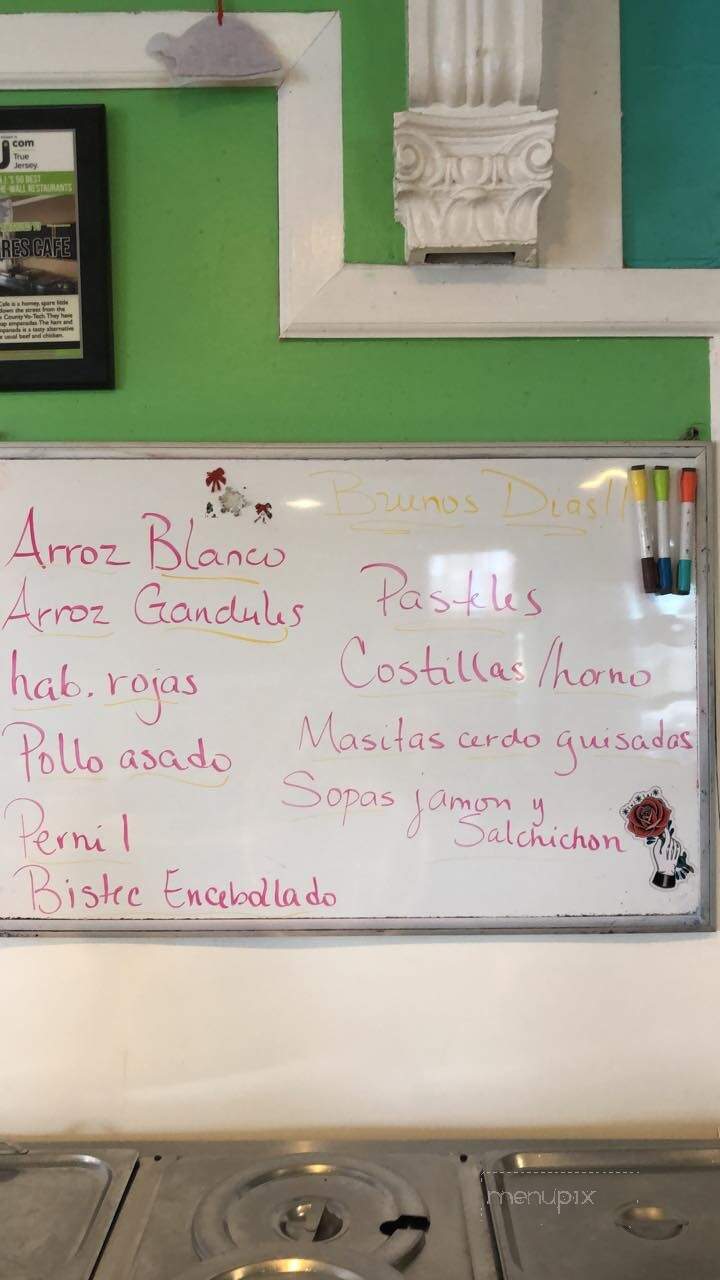 com
True
Jersey.
'S 50 BEST
-THE-WALL RESTAURANTS
RES CAFE
Cafe is a homey, spare little
down the street from the
County Vo-Tech. They have
empanadas. The ham and
empanada is a tasty alternative
usual beef and chicken.
Buenos Dias!!
Arroz Blanco
Arroz Gandules
hab. rojas
Pollo asado
Pernil
Bistec Encebollado
Pasteles
Costillas /horno
Masitas cerdo guisadas
Sopas jamon y
Salchichon
menupix